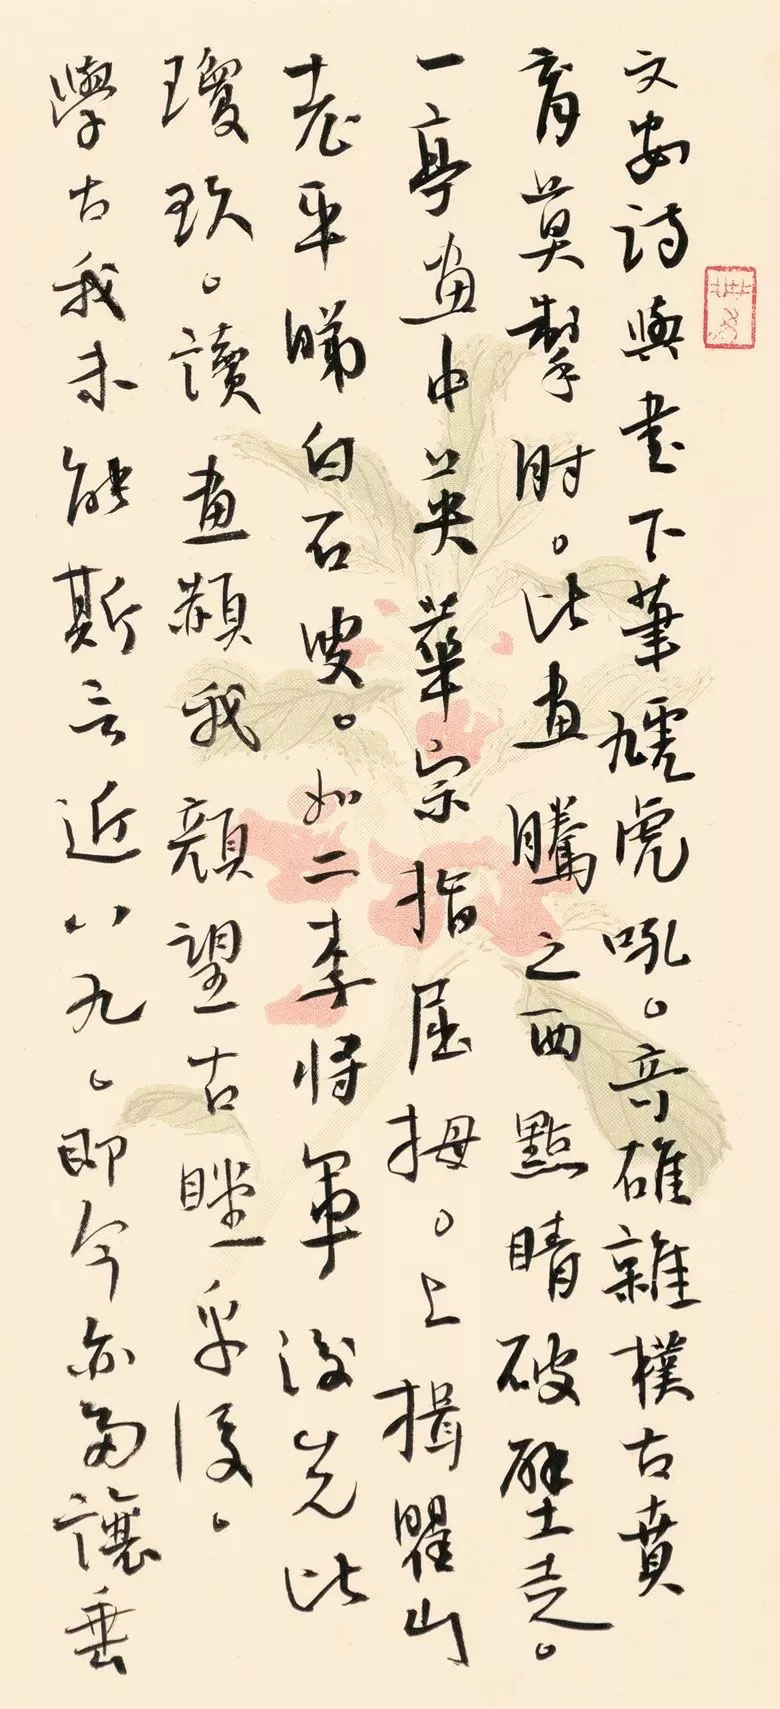 文安詩與書下筆虓虎吼。奇確雜樸古賁
育莫掣肘。此畫騰之而點睛破壁走。
一亭畫中英華宗指屈拇。上揖瞿山
老平睇白石叟。如二李將軍後先比
瓊玖。讀畫赬我顏望古瞠乎後。
學古我未能斯言近八九。即今亦多讓垂